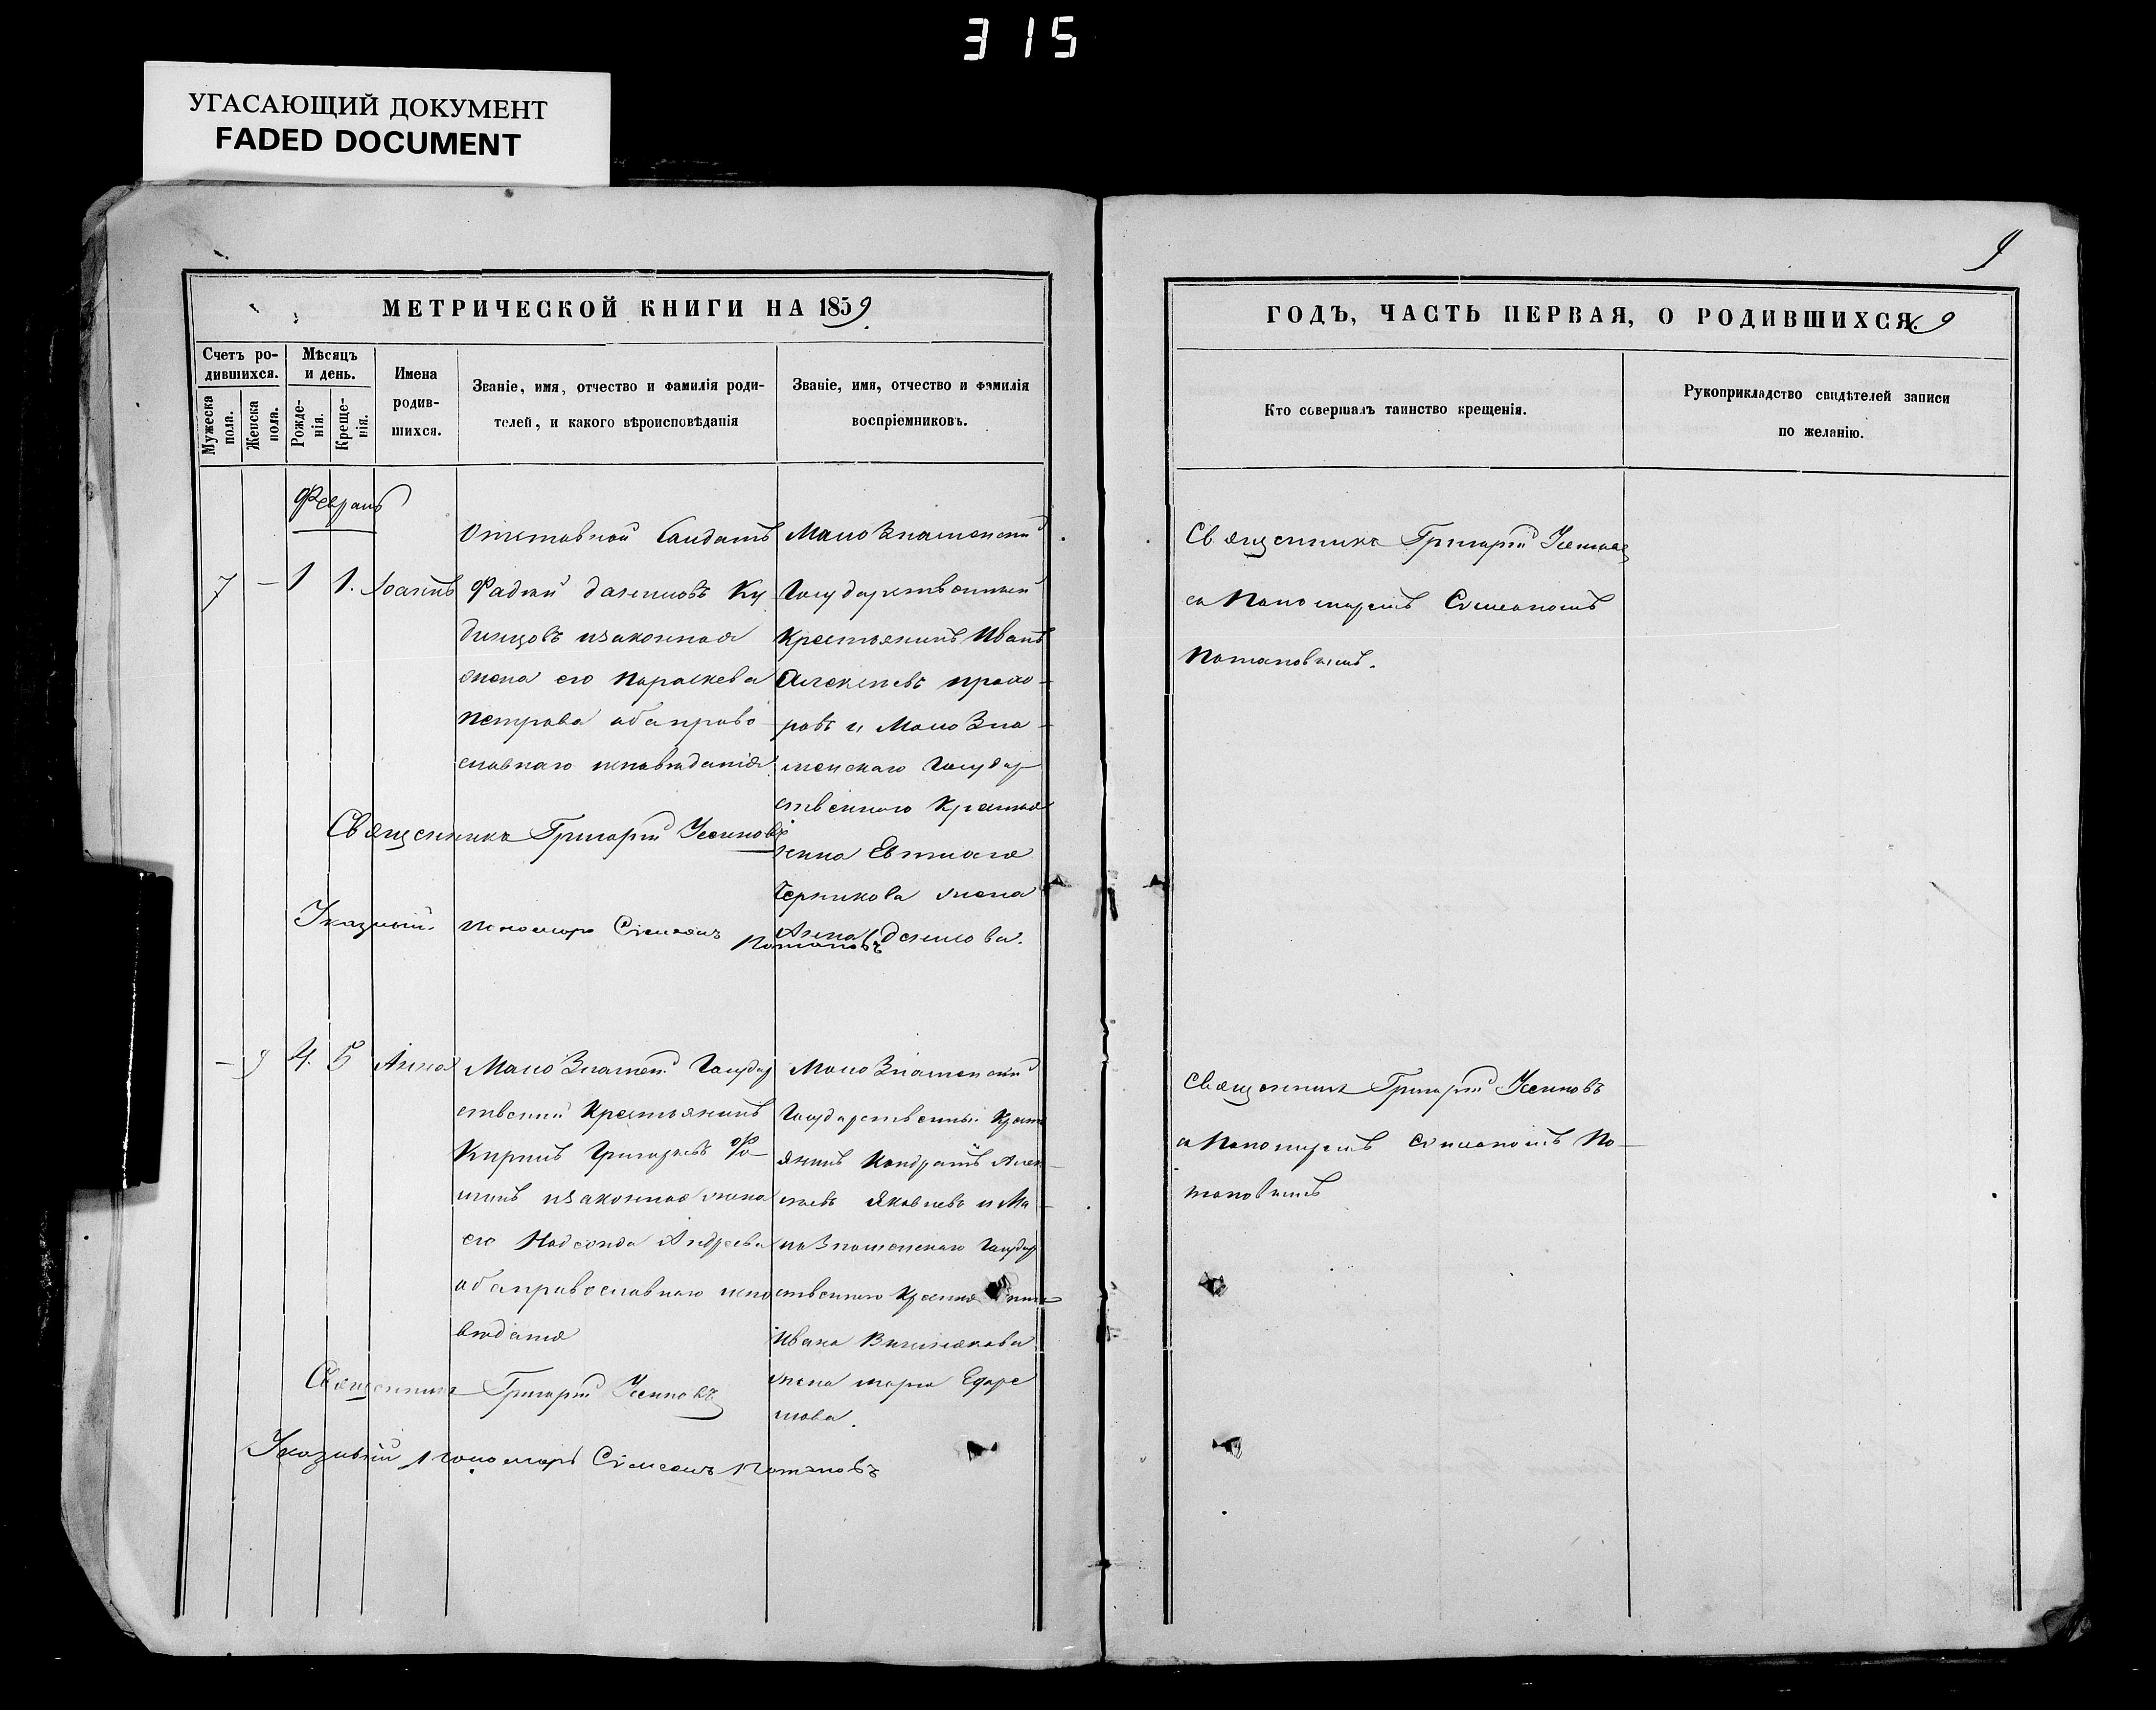 315
УГАСАЮЩИЙ ДОКУМЕНТ
FADED DOCUMENT
9
МЕТРИЧЕСКОЙ КНИГИ НА 1859
Счетъ ро-
дившихся.
Мужеска
пола.
Женска
пола.
Мѣсяцъ
и день.
Рожде-
нія.
Креще-
нія.
Имена
родив-
шихся.
Званіе, имя, отчество и фамилія роди-
телей, и какого вѣроисповѣданія
Званіе, имя, отчество и фамилія
воспріемниковъ.
Февраль
7 — 1 1. Іоаннъ
Отставной Солдатъ
Фадѣй Ку
динцовъ изаконная
жена его Параскева
Петрова обаправо
славнаго исповѣданія
МалоЗнаменский
Государственный
Крестьянинъ Иванъ
Алексѣевъ прохо-
ровъ и МалоЗна-
менскаго Государ
ственнаго Крестья
нина
Черникова жена
Анна
Священникъ Григорій Усиновъ
Указный пономарь Сімеонъ
Потаповъ
— 9 4. 5 Анна
МалоЗнамен. Государ
ственный Крестьянинъ
Кирилъ Григорьевъ Фо-
минъ изаконная жена
его Надежда Андреева
обаправославнаго испо
вѣданія
МалоЗнаменский
Государственный Крест
янинъ Кондратъ Алек-
сѣевъ Яковлевъ и Ма-
лоЗнаменскаго Государ
ственнаго Крестья нина
Ивана Вишнякова
жена марѳа Ефре
мова.
Священникъ Григорій Усиновъ
Указный пономарь Сімеонъ Потаповъ
ГОДЪ, ЧАСТЬ ПЕРВАЯ, О РОДИВШИХСЯ. 9
Кто совершалъ таинство крещенія.
Рукоприкладство свидѣтелей записи
по желанію.
Священникъ Григорій Усиновъ
съ Пономаремъ Сімеономъ
Потаповымъ.
Священникъ Григорій Усиновъ
съ Пономаремъ Сімеономъ По-
таповымъ